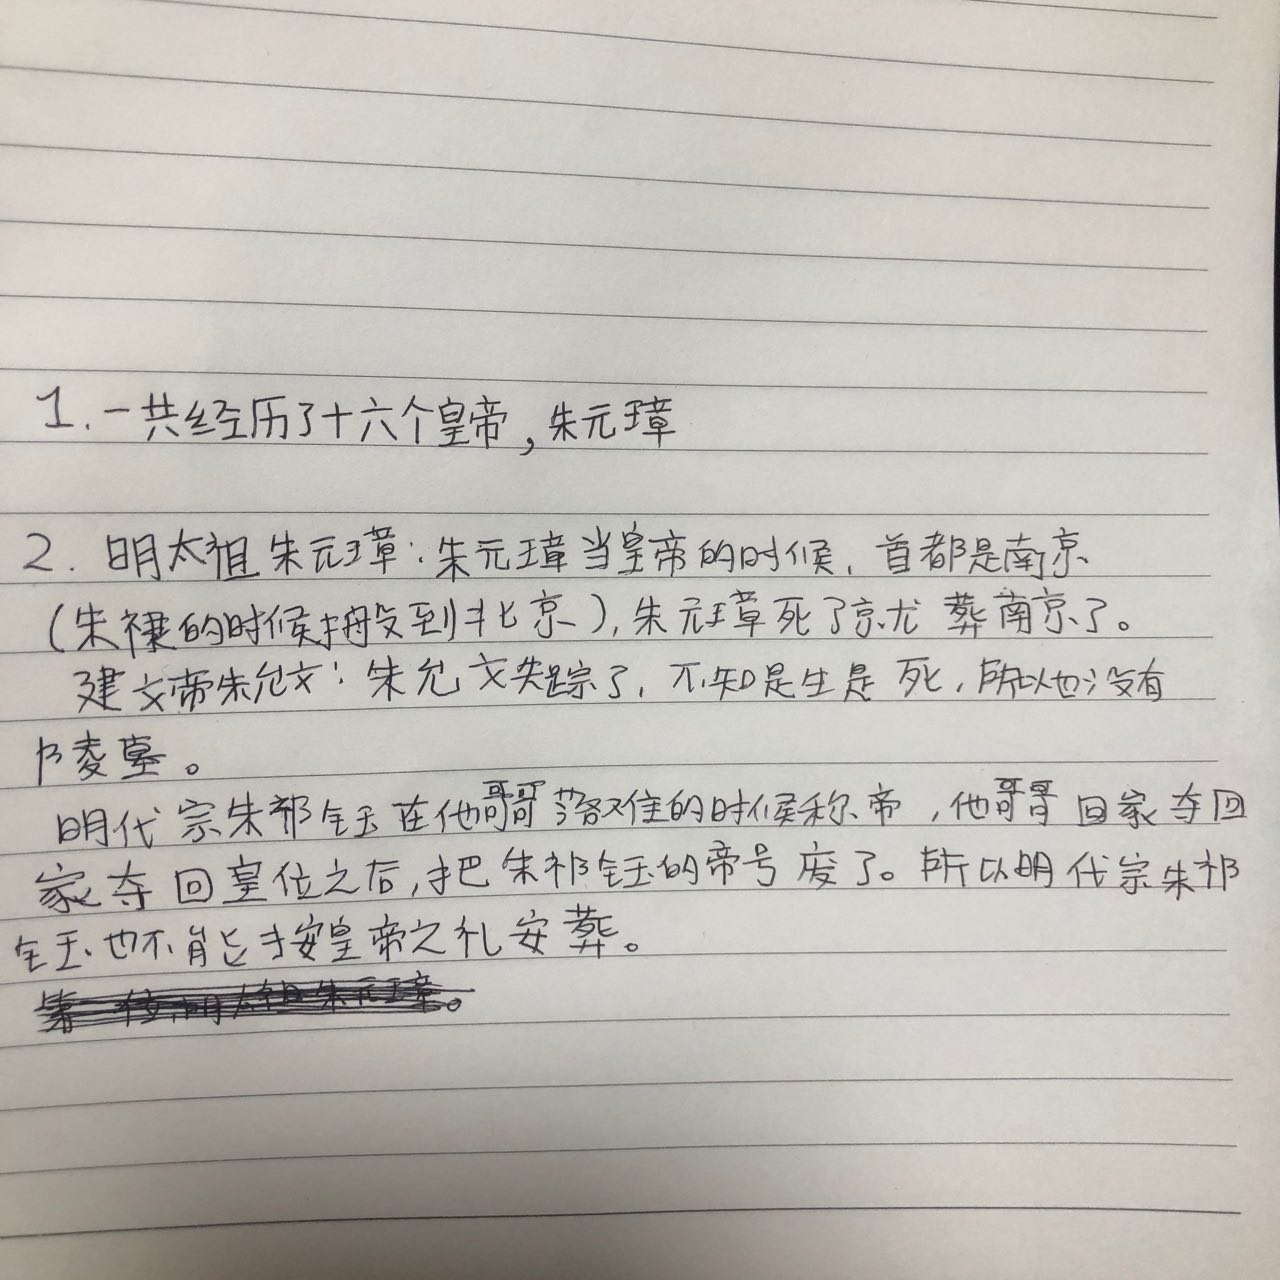 1. 一共经历了十六个皇帝,朱元璋
2. 明太祖朱元璋:朱元璋当皇帝的时候,首都是南京
(朱棣的时候搬到北京),朱元璋死了就葬南京了。
建文帝朱允炆:朱允炆失踪了,不知是生是死,所以也没有
陵墓。
明代宗朱祁钰在他哥哥落难的时候称帝,他哥哥回家夺回
家夺回皇位之后,把朱祁钰的帝号废了。所以明代宗朱祁
钰也不能按皇帝之礼安葬。